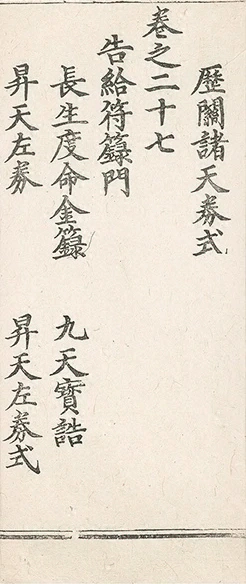 歷關諸天券式
卷之二十七
告給符籙門
長生度命金籙
九天寶誥
昇天左券
昇天左券式